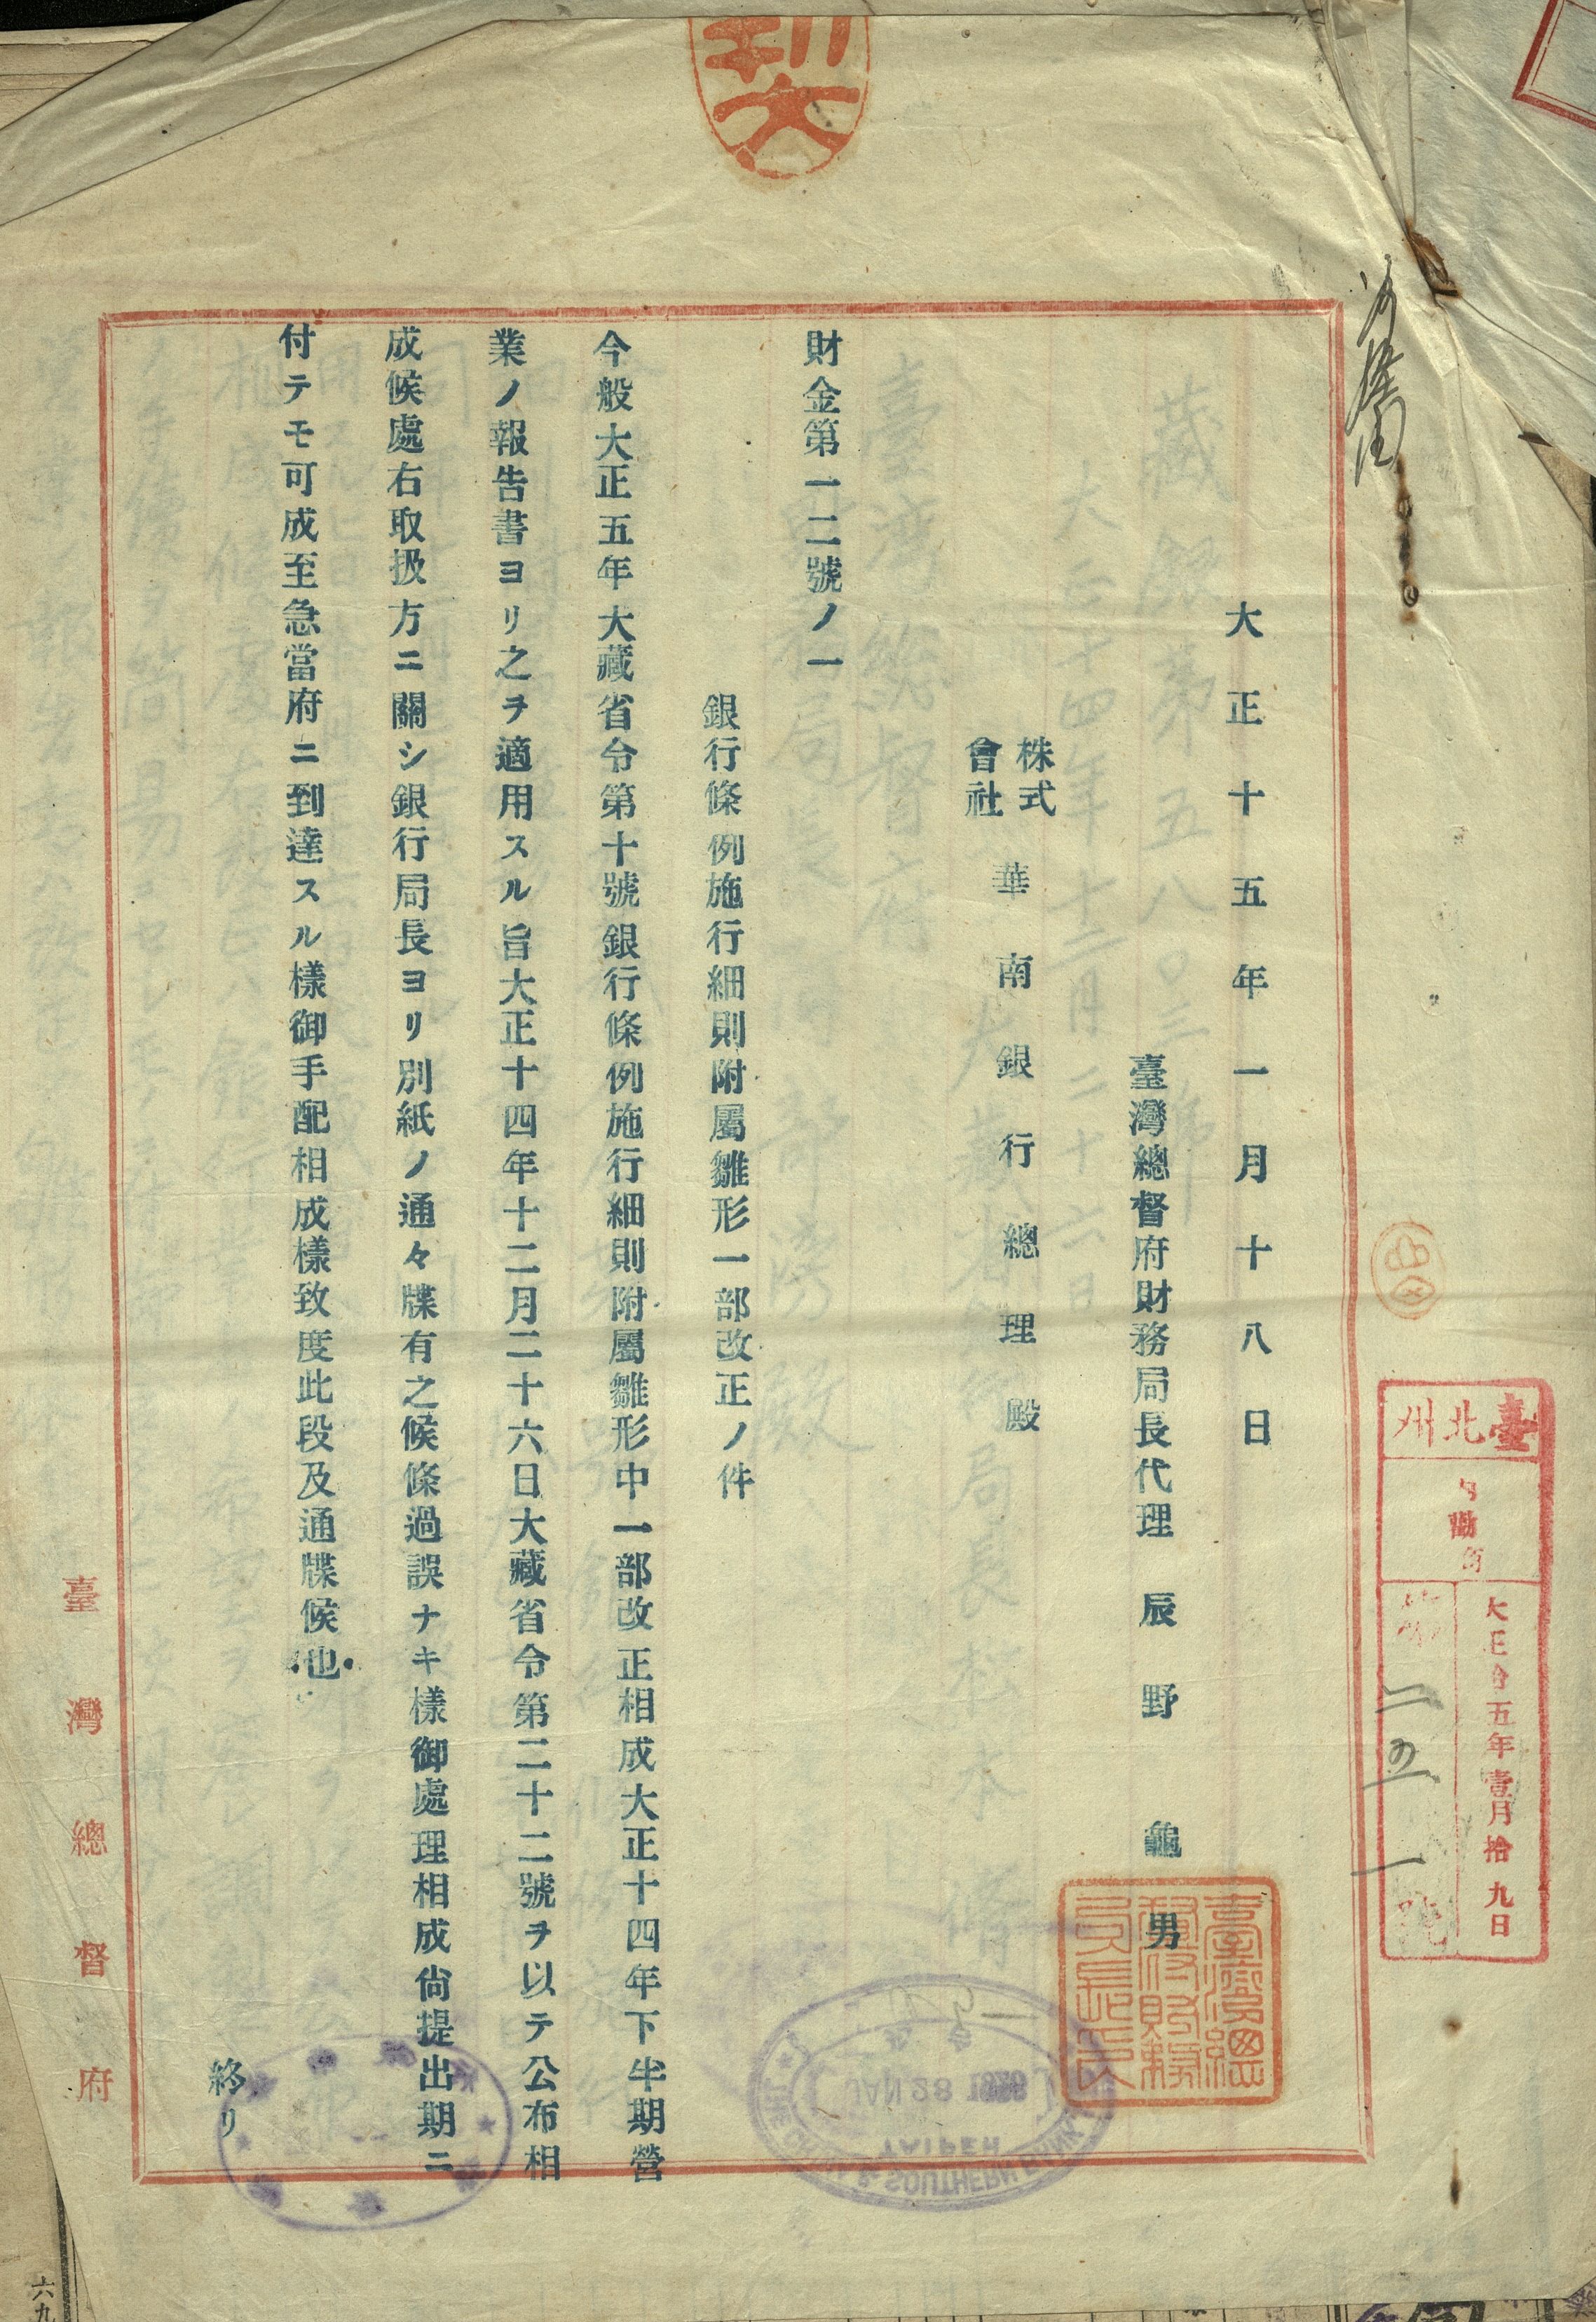 大正十五年一月十八日
臺灣總督府財務局長代理 辰野龜男
株式會社 華南銀行總理殿
財金第一二號ノ一
銀行條例施行細則附屬雛形一部改正ノ件
今般大正五年大藏省令第十號銀行條例施行細則附屬雛形中一部改正相成大正十四年下半期營
業ノ報告書ヨリ之ヲ適用スル旨大正十四年十二月二十六日大藏省令第二十二號ヲ以テ公布相
成候處右取扱方ニ關シ銀行局長ヨリ別紙ノ通々牒有之候條過誤ナキ樣御處理相成尙提出期ニ
付テモ可成至急當府ニ到達スル樣御手配相成樣致度此段及通牒候也
終リ
臺灣總督府
臺北州
大正拾五年壹月拾九日
第二五一號
臺灣總督府財務局長印
JAN 28 1926
TAIPEH
六九